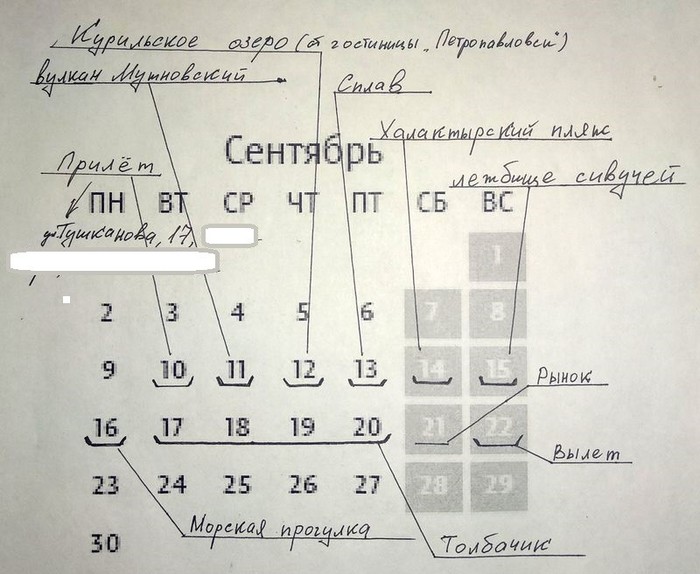 Курильское озеро (от гостиницы „Петропавловск")
вулкан Мутновский
Сплав
Халактырский пляж
Сентябрь
Прилёт
лежбище сивучей
ПН ВТ СР ЧТ ПТ СБ ВС
ул. Тушканова, 17,
1
2 3 4 5 6 7 8
9 10 11 12 13 14 15
Рынок
16 17 18 19 20 21 22
Вылет
23 24 25 26 27 28 29
Морская прогулка
30
Толбачик